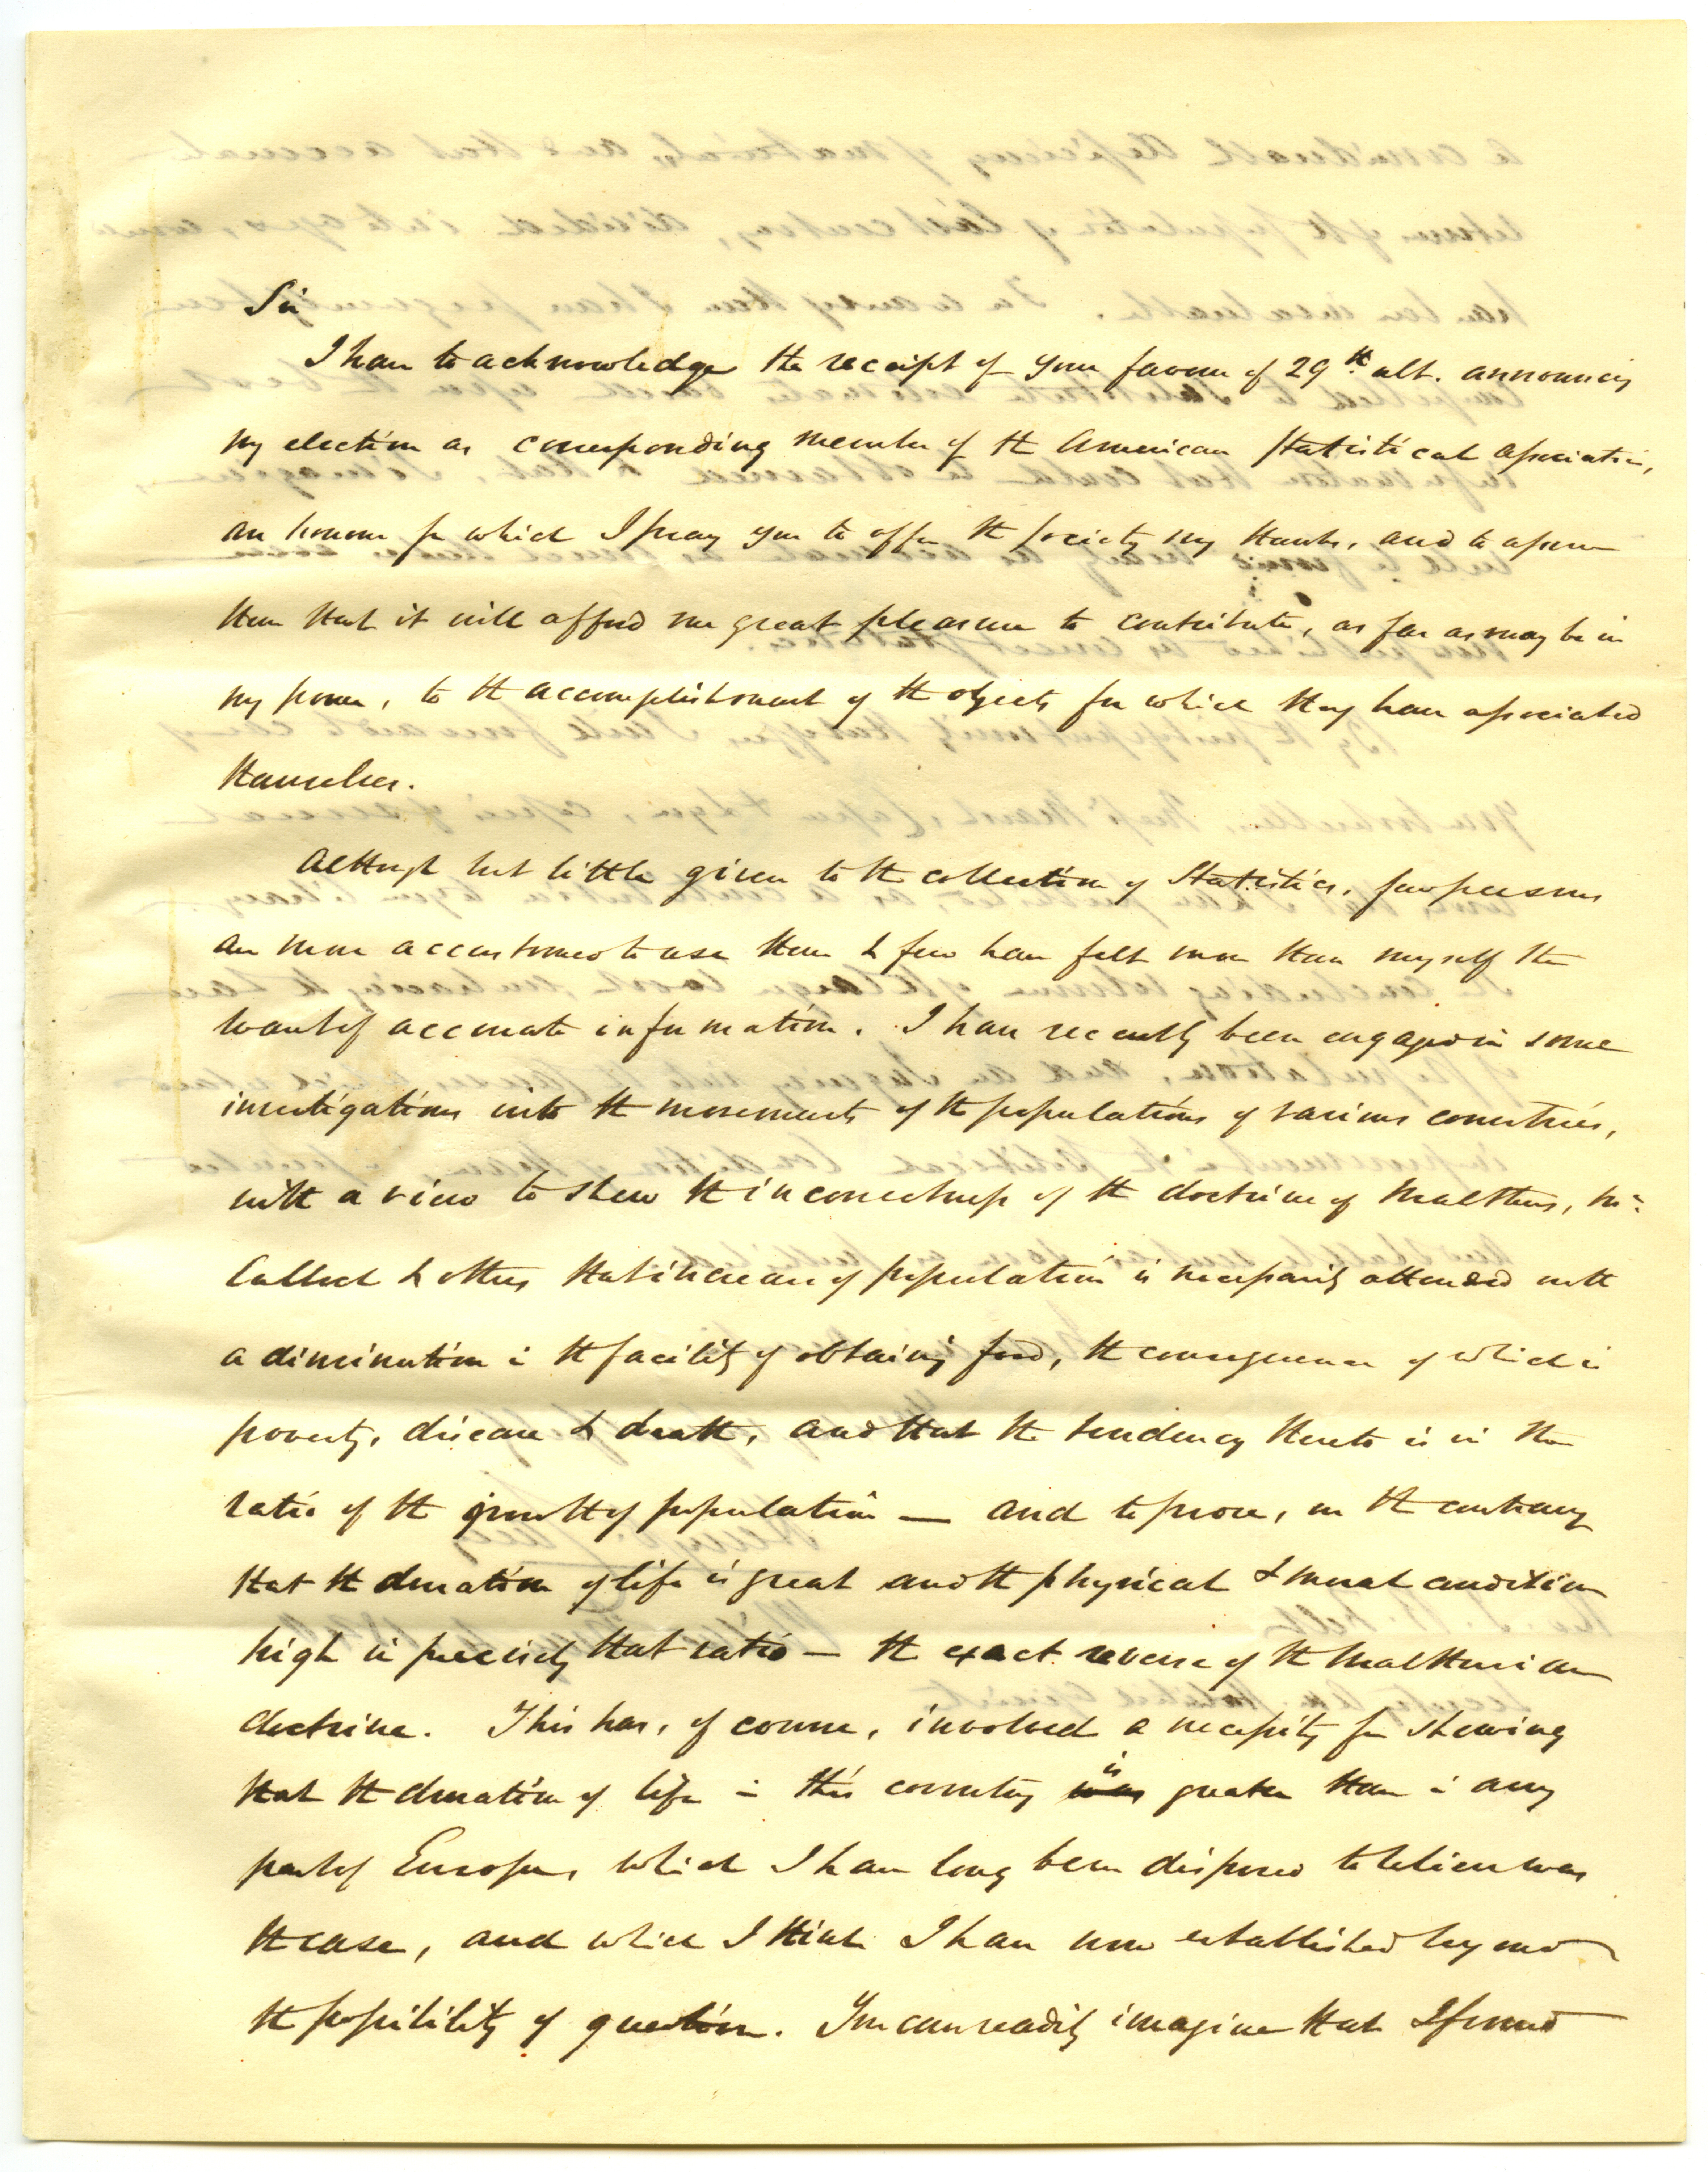 Sir
I have to acknowledge the receipt of your favour of 29th ult. announcing
my election as corresponding member of the American Statistical Association,
an honour for which I pray you to offer the Society my thanks, and to assure
them that it will afford me great pleasure to contribute, as far as may be in
my power, to the accomplishment of the objects for which they have associated
themselves.
Although but little given to the collection of Statistics, few persons
are more accustomed to use them & few have felt more than myself the
want of accurate information. I have recently been engaged in some
investigations into the movements of the populations of various countries,
with a view to shew the incorrectness of the doctrine of Malthus, Mc
Culloch & others that increase of population is necessarily attended with
a diminution in the facility of obtaining food, the consequence of which is
poverty, disease & death, and that the tendency thereto is in the
ratio of the growth of population — and to prove, on the contrary
that the duration of life is great and the physical & moral condition
high in precisely that ratio — the exact reverse of the Malthusian
doctrine. This has, of course, involved a necessity for shewing
that the duration of life in this country was is greater than in any
part of Europe, which I have long been disposed to believe was
the case, and which I think I have now established beyond
the possibility of question. You can readily imagine that I found